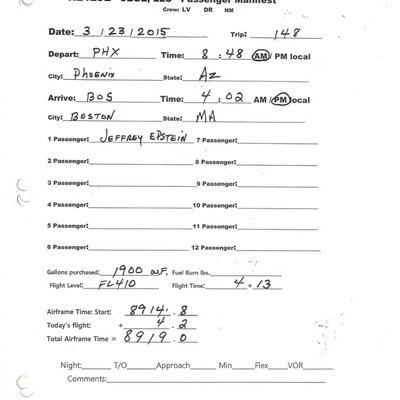 Passenger Manifest
Crew: LV DR NM
Date: 3 / 23 / 2015 Trip: 148
Depart: PHX Time: 8 : 48 AM / PM local
City: PHOENIX State: AZ
Arrive: BOS Time: 4 : 02 AM / PM local
City: BOSTON State: MA
1 Passenger: JEFFREY EPSTEIN 7 Passenger:
2 Passenger: 8 Passenger:
3 Passenger: 9 Passenger:
4 Passenger: 10 Passenger:
5 Passenger: 11 Passenger:
6 Passenger: 12 Passenger:
Gallons purchased: 1900 W.F. Fuel Burn lbs.
Flight Level: FL410 Flight Time: 4 + 13
Airframe Time: Start: 8914 . 8
Today's flight: + 4 . 2
Total Airframe Time = 8919 . 0
Night: T/O Approach Min Flex VOR
Comments: